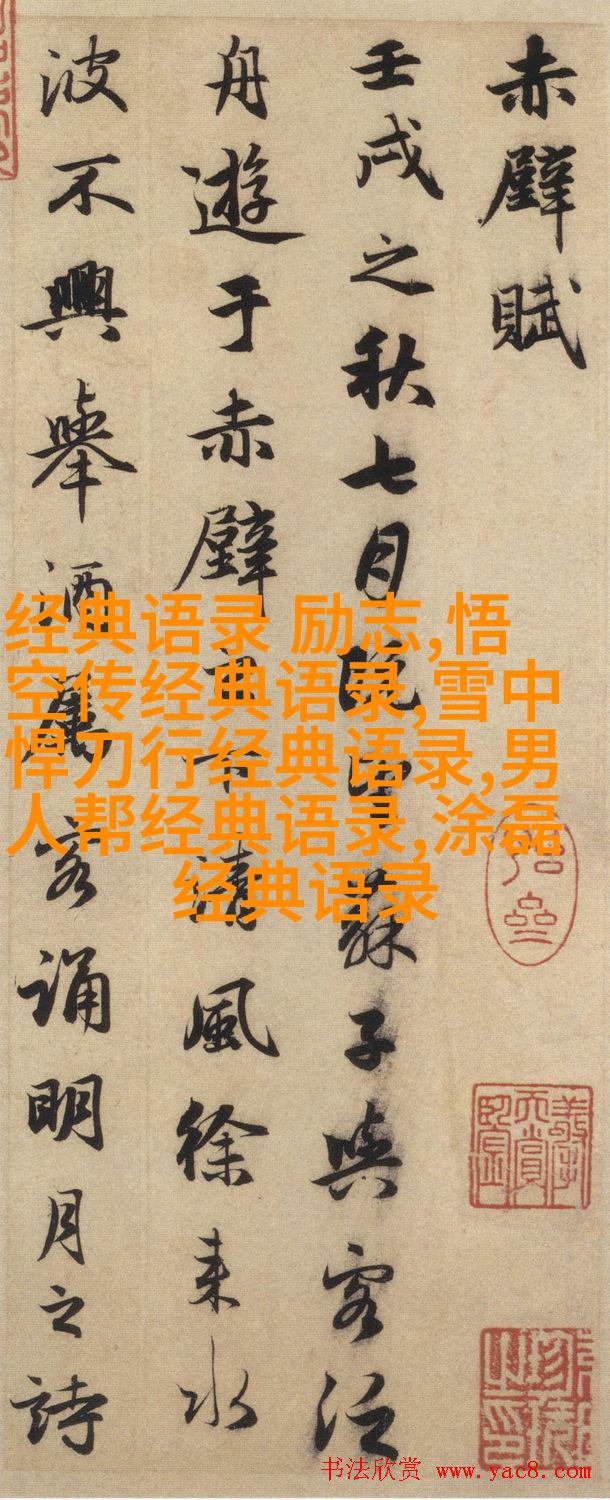 赤壁賦
壬戌之秋七月既望蘇子與客泛
舟遊于赤壁之下清風徐来水
波不興舉酒屬客誦明月之詩
经典语录 励志,悟
空传经典语录,雪中
悍刀行经典语录,男
人帮经典语录,涂磊
经典语录
书法欣赏 www.yac8.com